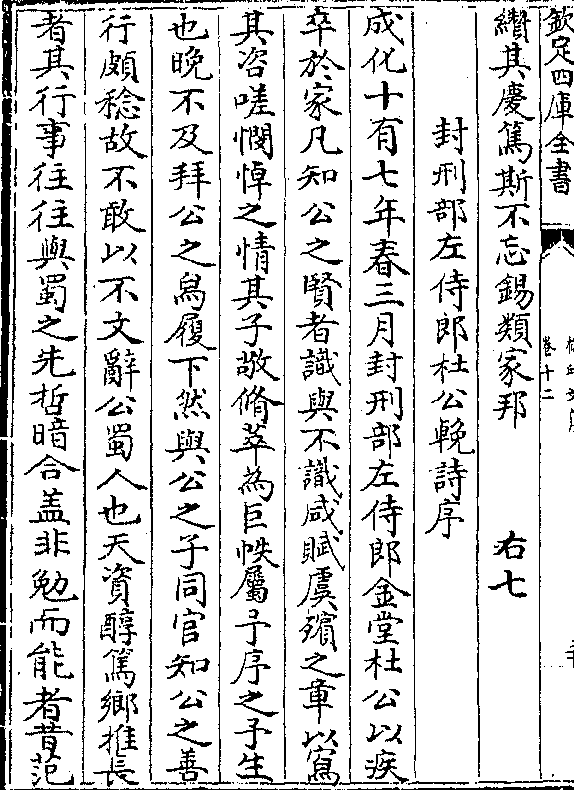 欽定四庫全書
卷十二
纘其慶篤斯不忘錫類家邦　右七
封刑部左侍郎杜公輓詩序
成化十有七年春三月封刑部左侍郎金堂杜公以疾
卒於家凡知公之賢者識與不識咸賦虞殯之章以寫
其咨嗟憫悼之情其子敬脩萃為巨帙屬予序之予生
也晚不及拜公之舄履下然與公之子同官知公之善
行頗稔故不敢以不文辭公蜀人也天資醇篤鄉推長
者其行事往往與蜀之先哲暗合盖非勉而能者昔范